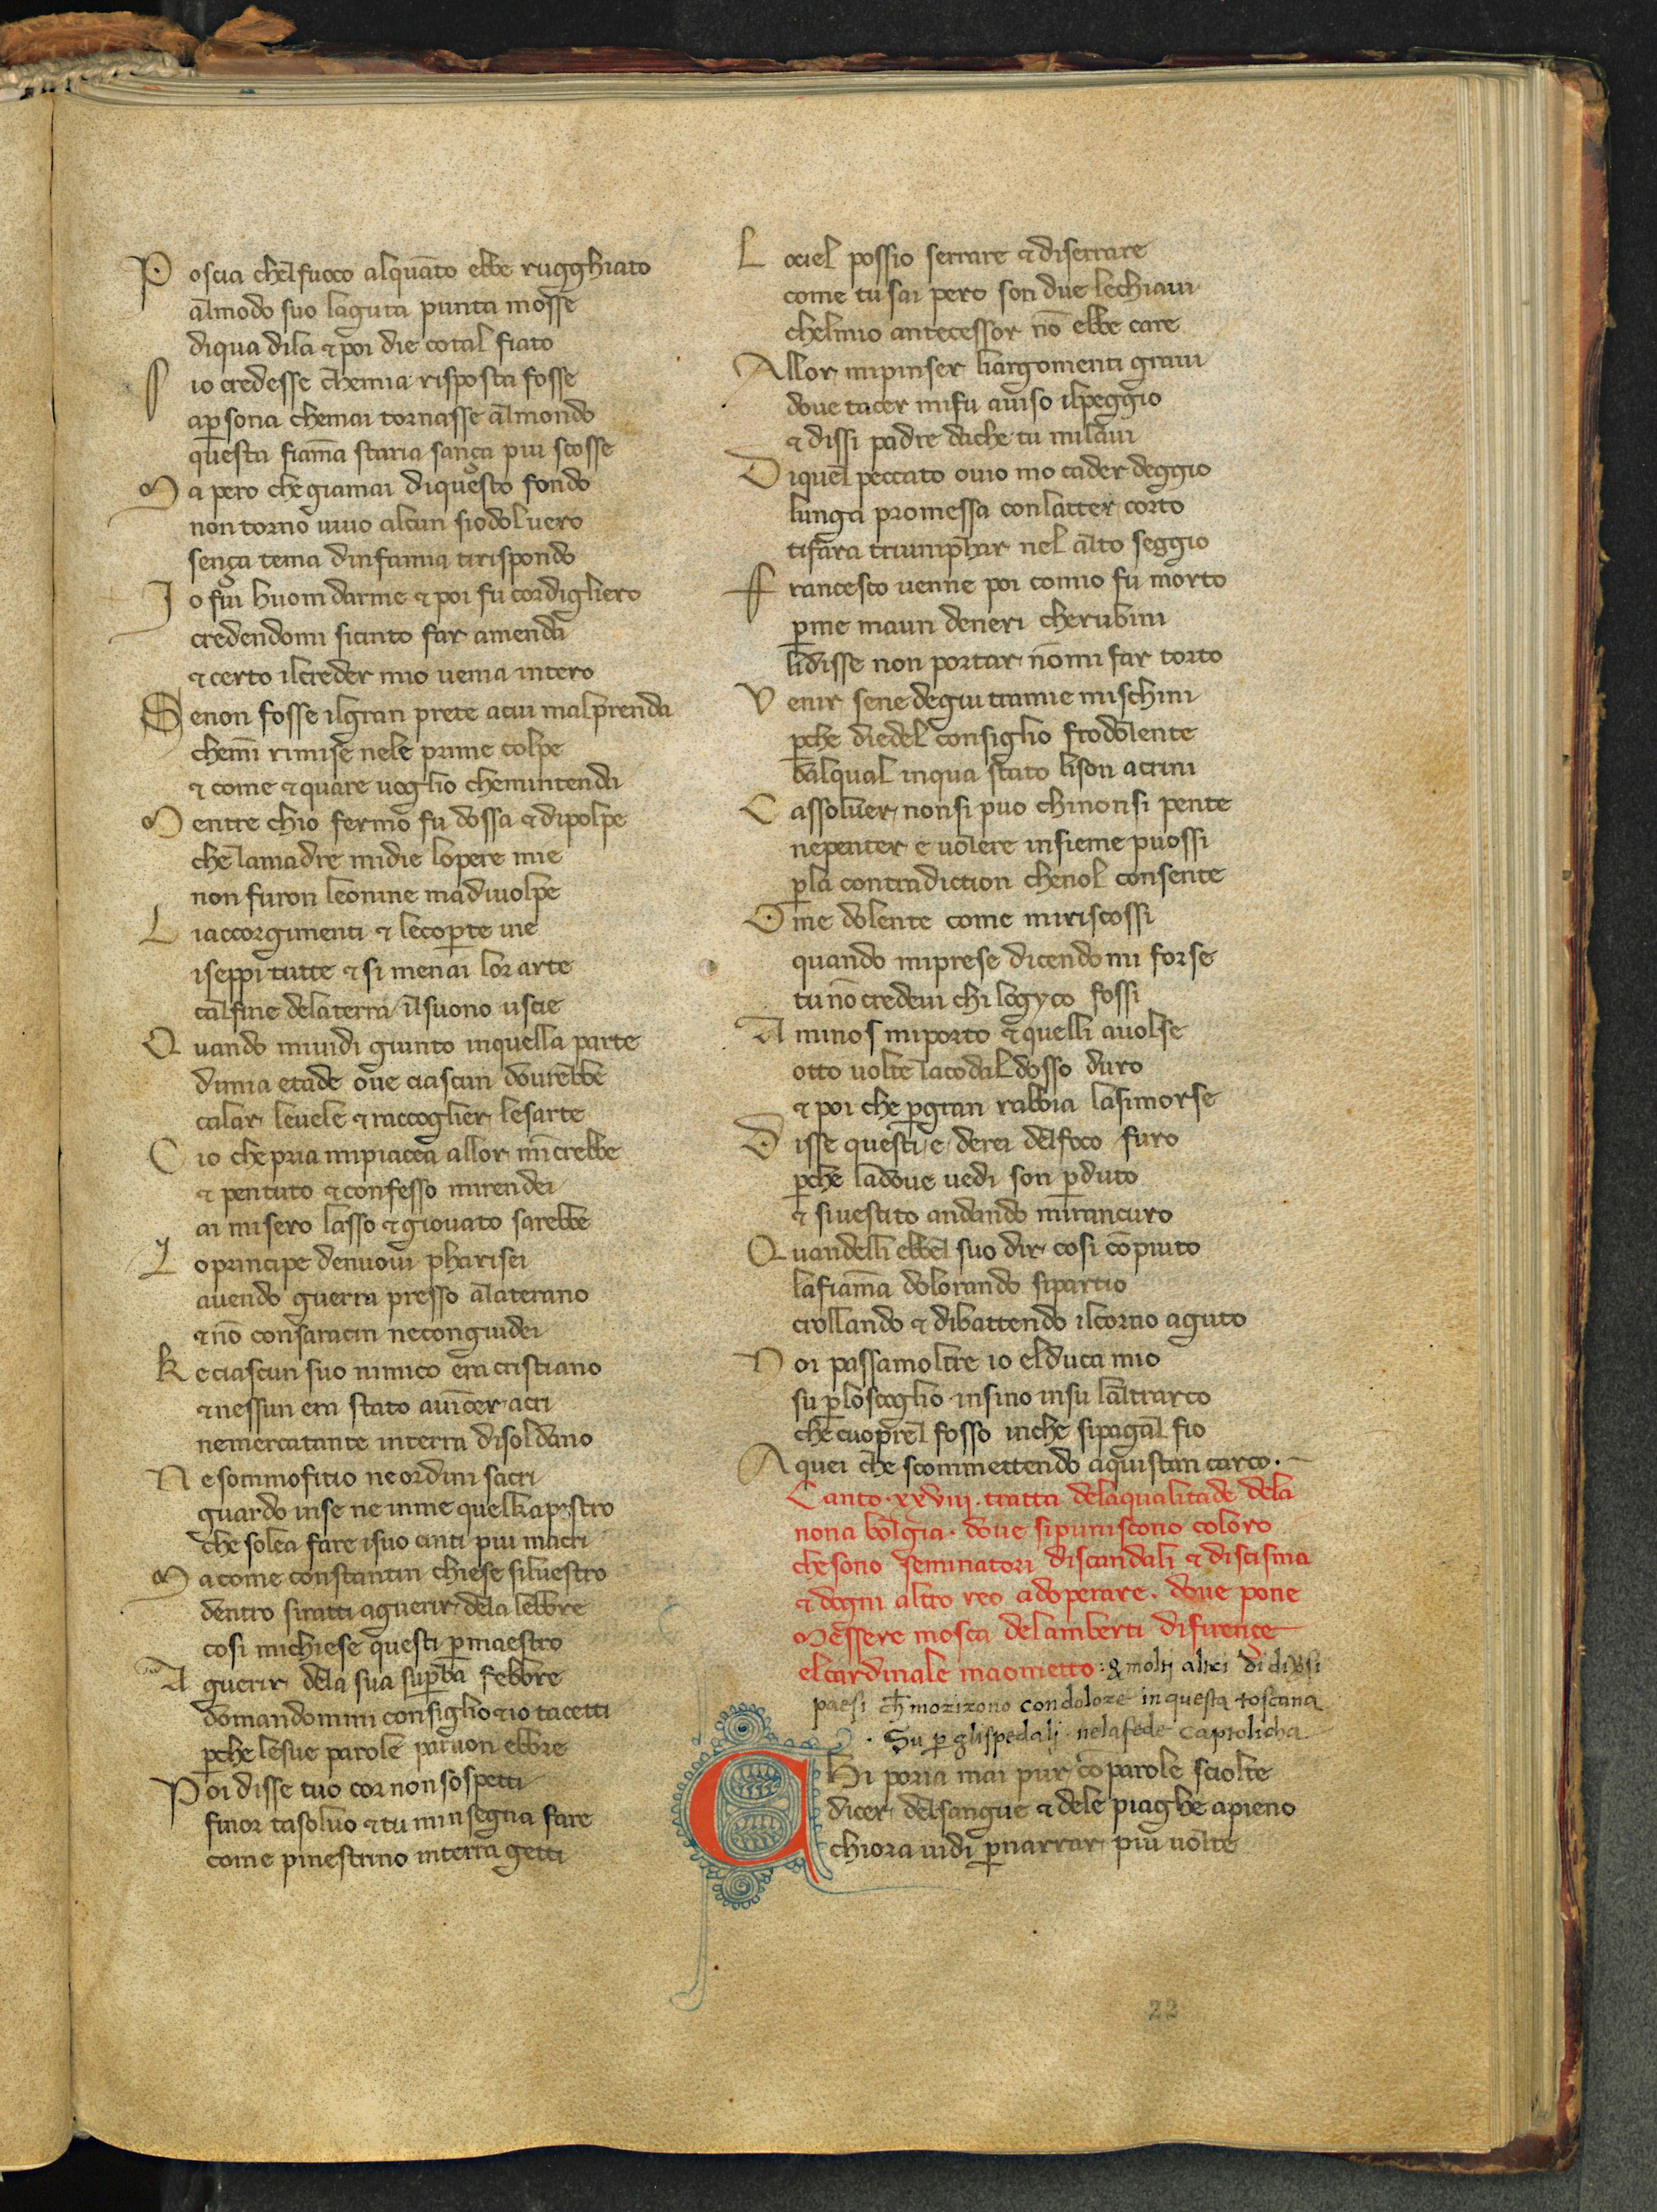 P oscia chelfuoco alquāto ebbe rugghiato
almodo suo laguta punta mosse
diqua dila ⁊ poi die cotal fiato
S io credesse chemia risposta fosse
aꝑsona chemai tornasse almondo
questa fiāma staria sança piu scosse
M a pero chegiamai diquesto fondo
non torno uiuo alcun siodol uero
sença tema dinfamia tirispondo
J o fui huom darme ⁊ poi fu cordigliero
credendomi sicinto far amenda
⁊ certo ilcreder mio uenia intero
S enon fosse ilgran prete acui malprenda
chemi rimise nele prime colpe
⁊ come ⁊ quare uoglio chemintenda
M entre chio fermo fu dossa ⁊ dipolpe
che lamadre midie lopere mie
non furon leonine madiuolpe
L iaccorgimenti ⁊ lecoꝑte uie
iseppi tutte ⁊ si menai lor arte
calfine delaterra ilsuono uscie
Q uando miuidi giunto inquella parte
dimia etade oue ciascun dourebbe
calar leuele ⁊ raccoglier lesarte
C io che pria mipiacea allor mīcrebbe
⁊ pentuto ⁊ confesso mirendei
ai misero lasso ⁊ giouato sarebbe
L o principe denuoui pharisei
auendo guerra presso alaterano
⁊ nō consaracin necongiudei
K e ciascun suo nimico era cristiano
⁊ nessun era stato auīcer acri
nemercatante interra disoldano
N e sommofitio ne ordini sacri
guardo inse ne inme quelkapestro
che solea fare isuo cinti piu macri
M a come constantin chiese siluestro
dentro siratti aguerir dela lebbre
cosi michiese questi ꝑmaestro
A guerir dela sua suꝑba febbre
domandommi consiglio ⁊ io tacetti
ꝑche lesue parole paruon ebbre
P oi disse tuo cor non sospetti
finor tasoluo ⁊ tu minsegna fare
come pinestrino interra getti
L ociel possio serrare ⁊ diserrare
come tu sai pero son due lechiaui
chelmio antecessor nō ebbe care
A llor mipinser liargomenti graui
doue tacer mifu auiso ilpeggio
⁊ dissi padre dache tu milaui
D iquel peccato ouio mo cader deggio
lunga promessa conlatter corto
tifara triumphar nel alto seggio
F rancesco uenne poi comio fu morto
ꝑme maun deneri cherubini
lidisse non portar nōmi far torto
V enir sene degiu tramie mischini
ꝑche diedel consiglio frodolente
dalqual inqua stato lison acrini
C assoluer nonsi puo chinonsi pente
nepenter e uolere insieme puossi
ꝑla contradiction chenol consente
O me dolente come miriscossi
quando miprese dicendomi forse
tu nō credeui chi logyco fossi
A minos miporto ⁊ quelli auolse
otto uolte lacodal dosso duro
⁊ poi che ꝑgran rabbia lasimorse
D isse questi e derei delfoco furo
ꝑche ladoue uedi son ꝑduto
⁊ siuestito andando mirancuro
Q uandelli ebbel suo dir cosi cōpiuto
lafiāma dolorando sipartio
crollando ⁊ dibattendo ilcorno aguto
N oi passamoltre io elduca mio
su ꝑloscoglio insino insu laltrarco
che cuoprel fosso inche sipagal fio
A quei che scommettendo aquistan carco.
Canto .xxviij. tratta delaqualitade dela
nona bolgia. doue sipuniscono coloro
chesono seminatori discandali ⁊ discisma
⁊ dogni altro reo adoperare. doue pone
Messere mosca delamberti difirençe
elcardinale maometto: & molti altri di diu̕si
paesi ch̄ morirono condolore in questa toscana
. Su ꝑ glispedalj nelafede captolicha
C Hi poria mai pur cō parole sciolte
dicer delsangue ⁊ dele piaghe apieno
chiora uidi ꝑnarrar piu uolte
22